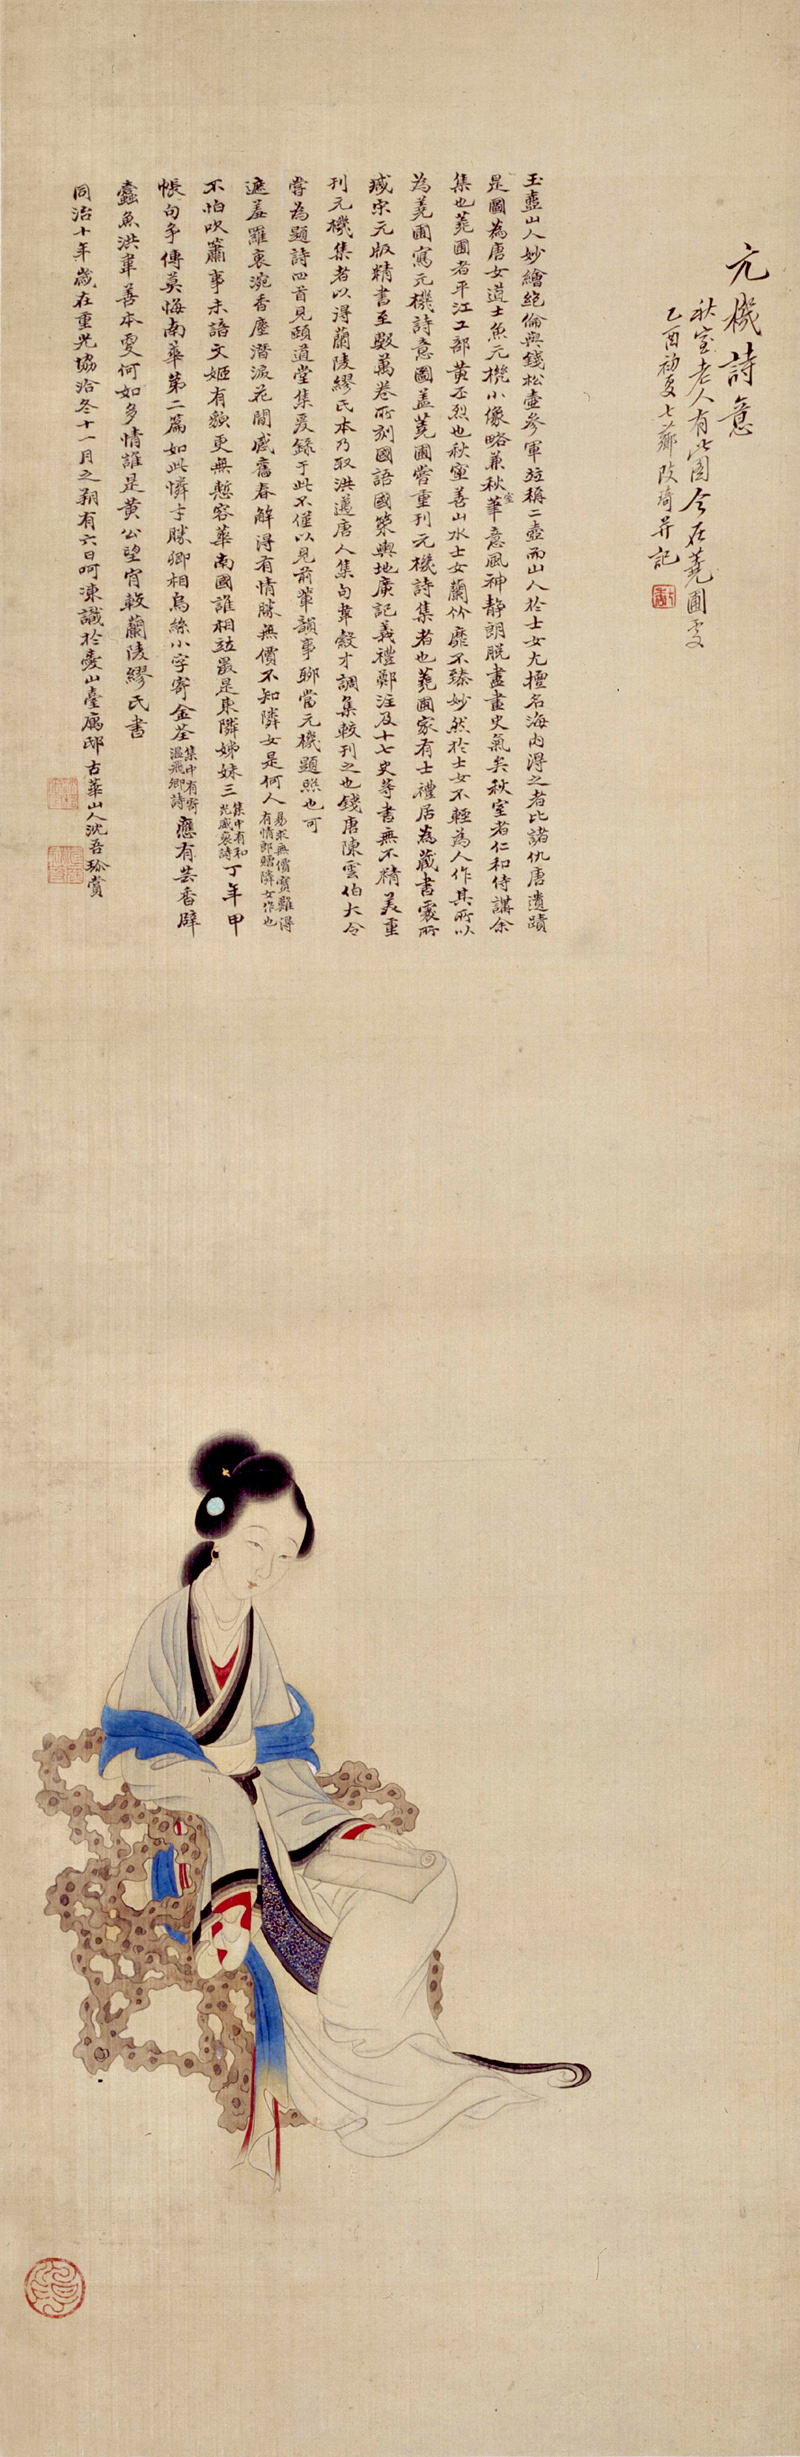 元機詩意
秋室老人有此圖今在蕘圃處
乙酉初夏七薌改琦并記
玉壺山人妙繪絶倫與錢松壺參軍竝稱二壺而山人於士女尤擅名海內得之者比諸仇唐遺蹟
是圖為唐女道士魚元機小像略兼秋室華意風神靜朗脱盡畫史氣矣秋室者仁和侍講余
集也蕘圃者平江工部黃丕烈也秋室善山水士女蘭竹靡不臻妙然於士女不輕為人作其所以
為蕘圃寫元機詩意圖蓋蕘圃嘗重刊元機詩集者也蕘圃家有士禮居為藏書處所
臧宋元版精書至數萬卷所刻國語國策輿地廣記義禮鄭注及十七史等書無不精美重
刊元機集者以得蘭陵繆氏本乃取洪邁唐人集句韋縠才調集較刊之也錢唐陳雲伯大令
嘗為題詩四首見頤道堂集爰錄于此不僅以見前輩韻事聊當元機題照也可
遮羞羅袖涴香塵潛淚花間感舊春解得有情勝無價不知隣女是何人易求無價寶難得有情郎贈隣女作也
不怕吹簫事未諧文姬有貌更無慙容華南國誰相竝最是東隣姊妹三集中有和光威裒詩丁年甲
帳句爭傳莫悔南華第二篇如此憐才勝卿相烏絲小字寄金荃集中有寄溫飛卿詩應有芸香辟
蠹魚洪韋善本更何如多情誰是黃公望肯較蘭陵繆氏書
同治十年歲在重光協洽冬十一月之朔有六日呵凍識於愛山臺寓邸古華山人沈吾珍賞